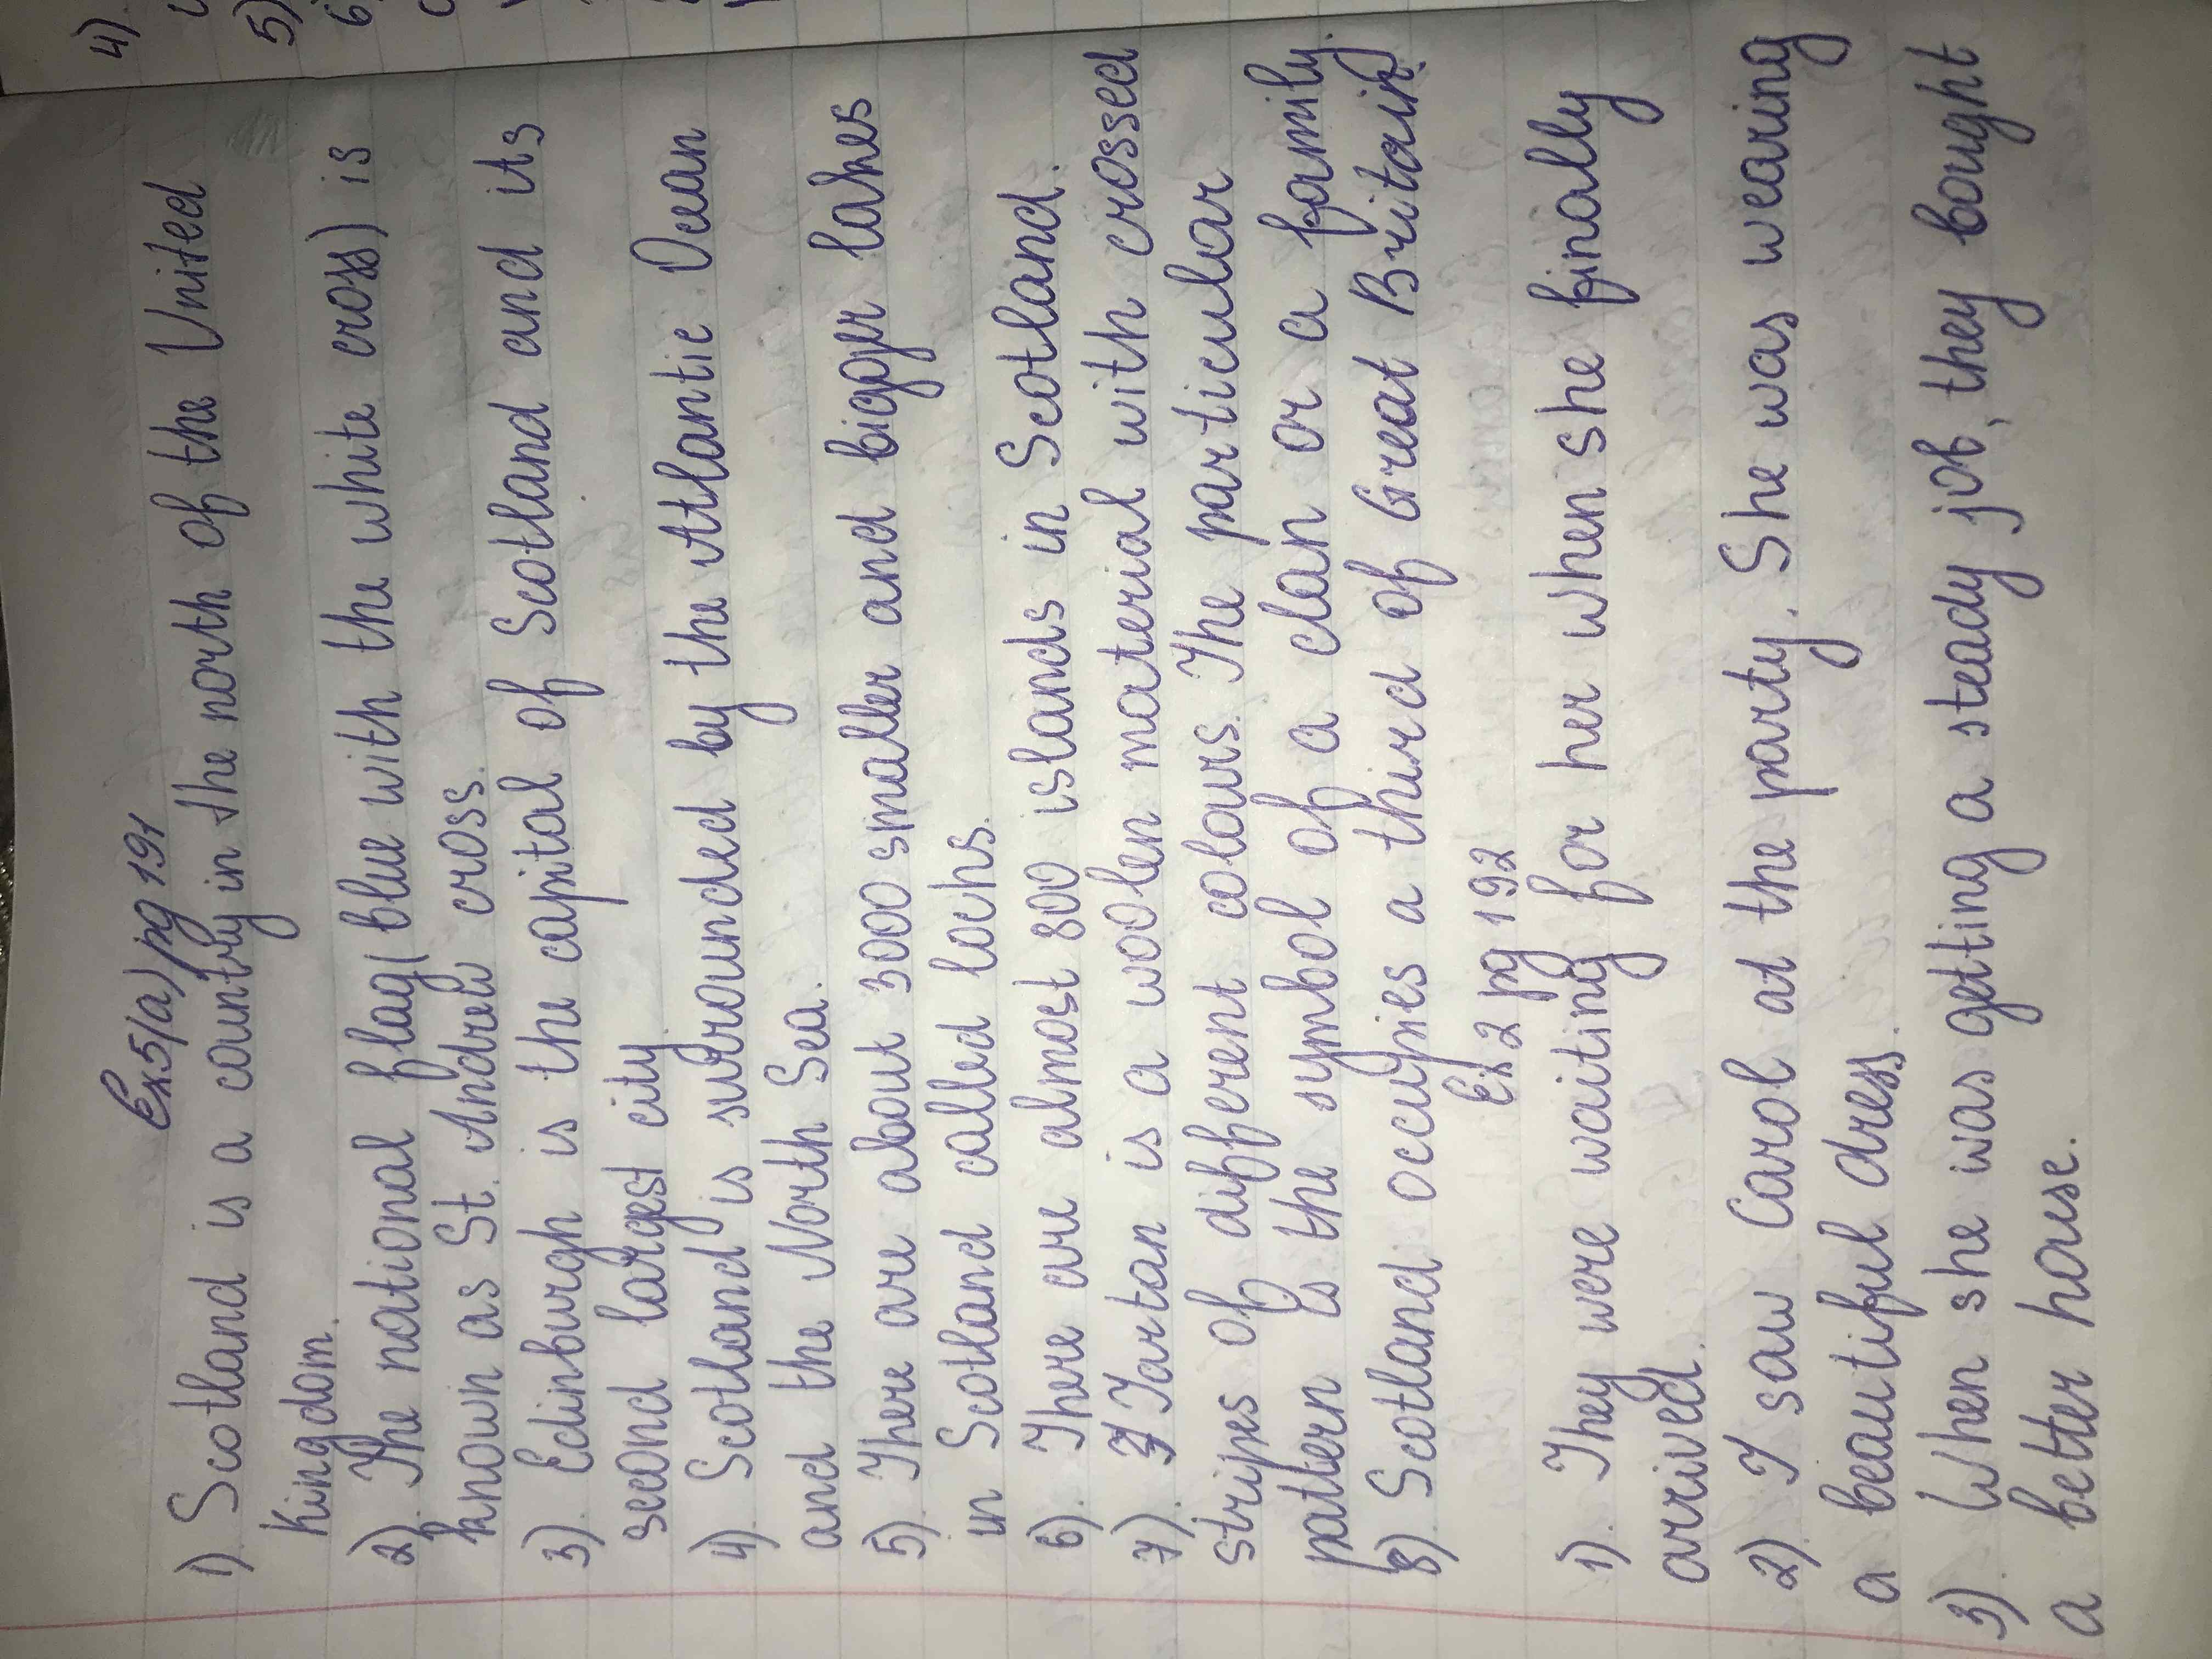 Ex 5(a) pg 191
1). Scotland is a country in the north of the United
Kingdom.
2). The national flag( blue with the white cross) is
known as St. Andrew cross.
3). Edinburgh is the capital of Scotland and its
second largest city.
4). Scotland is surrounded by the Atlantic Ocean
and the North Sea.
5). There are about 3000 smaller and bigger lakes
in Scotland called lochs.
6). There are almost 800 islands in Scotland.
7). Tartan is a woolen material with crossed
stripes of different colours. The particular
pattern is the symbol of a clan or a family.
8). Scotland occupies a third of Great Britain.
Ex 2 pg 192
1). They were waiting for her when she finally
arrived.
2) I saw Carol at the party. She was wearing
a beautiful dress.
3). When she was getting a steady job, they bought
a better house.
4).
5)
6